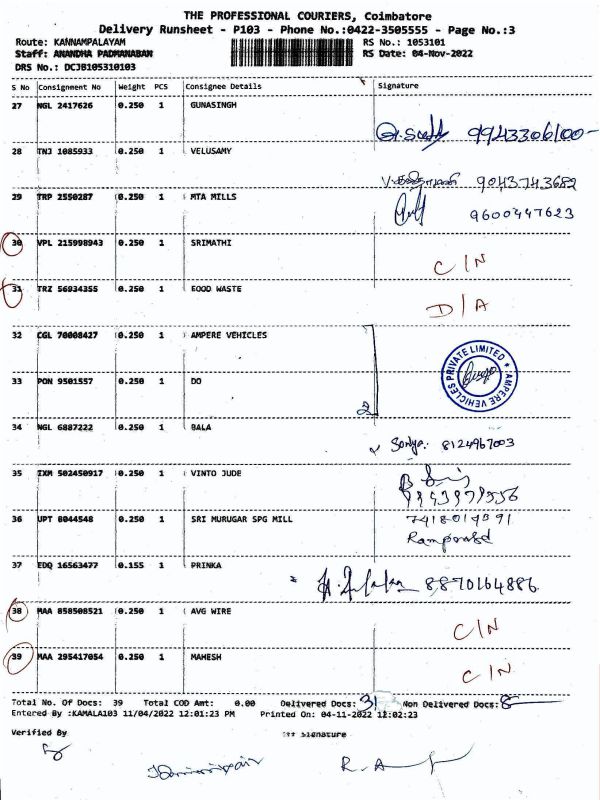 THE PROFESSIONAL COURIERS, Coimbatore
Delivery Runsheet - P103 - Phone No.:0422-3505555 - Page No.:3
Route: KANNAMPALAYAM RS No.: 1053101
Staff: ANANDHA PADMANABAN RS Date: 04-Nov-2022
DRS No.: DCJB105310103
S No Consignment No Weight PCS Consignee Details Signature
27 NGL 2417626 0.250 1 GUNASINGH
9943306100-
28 TNJ 1085933 0.250 1 VELUSAMY
9043743682
29 TRP 2550287 0.250 1 MTA MILLS
9600447623
30 VPL 215998943 0.250 1 SRIMATHI
C/N
31 TRZ 56934355 0.250 1 FOOD WASTE
D/A
32 CGL 70008427 0.250 1 AMPERE VEHICLES
AMPERE VEHICLES PRIVATE LIMITED
33 PON 9501557 0.250 1 DO
2
34 NGL 6887222 0.250 1 BALA
Sonya: 8124967003
35 IXM 502450917 0.250 1 VINTO JUDE
36 UPT 8044548 0.250 1 SRI MURUGAR SPG MILL
37 EDQ 16563477 0.155 1 PRINKA
8870164886
38 MAA 858508521 0.250 1 AVG WIRE
C/N
39 MAA 295417054 0.250 1 MAHESH
C/N
Total No. Of Docs: 39 Total COD Amt: 0.00 Delivered Docs: 31 Non Delivered Docs: 8
Entered By :KAMALA103 11/04/2022 12:01:23 PM Printed On: 04-11-2022 12:02:23
Verified By *** Signature